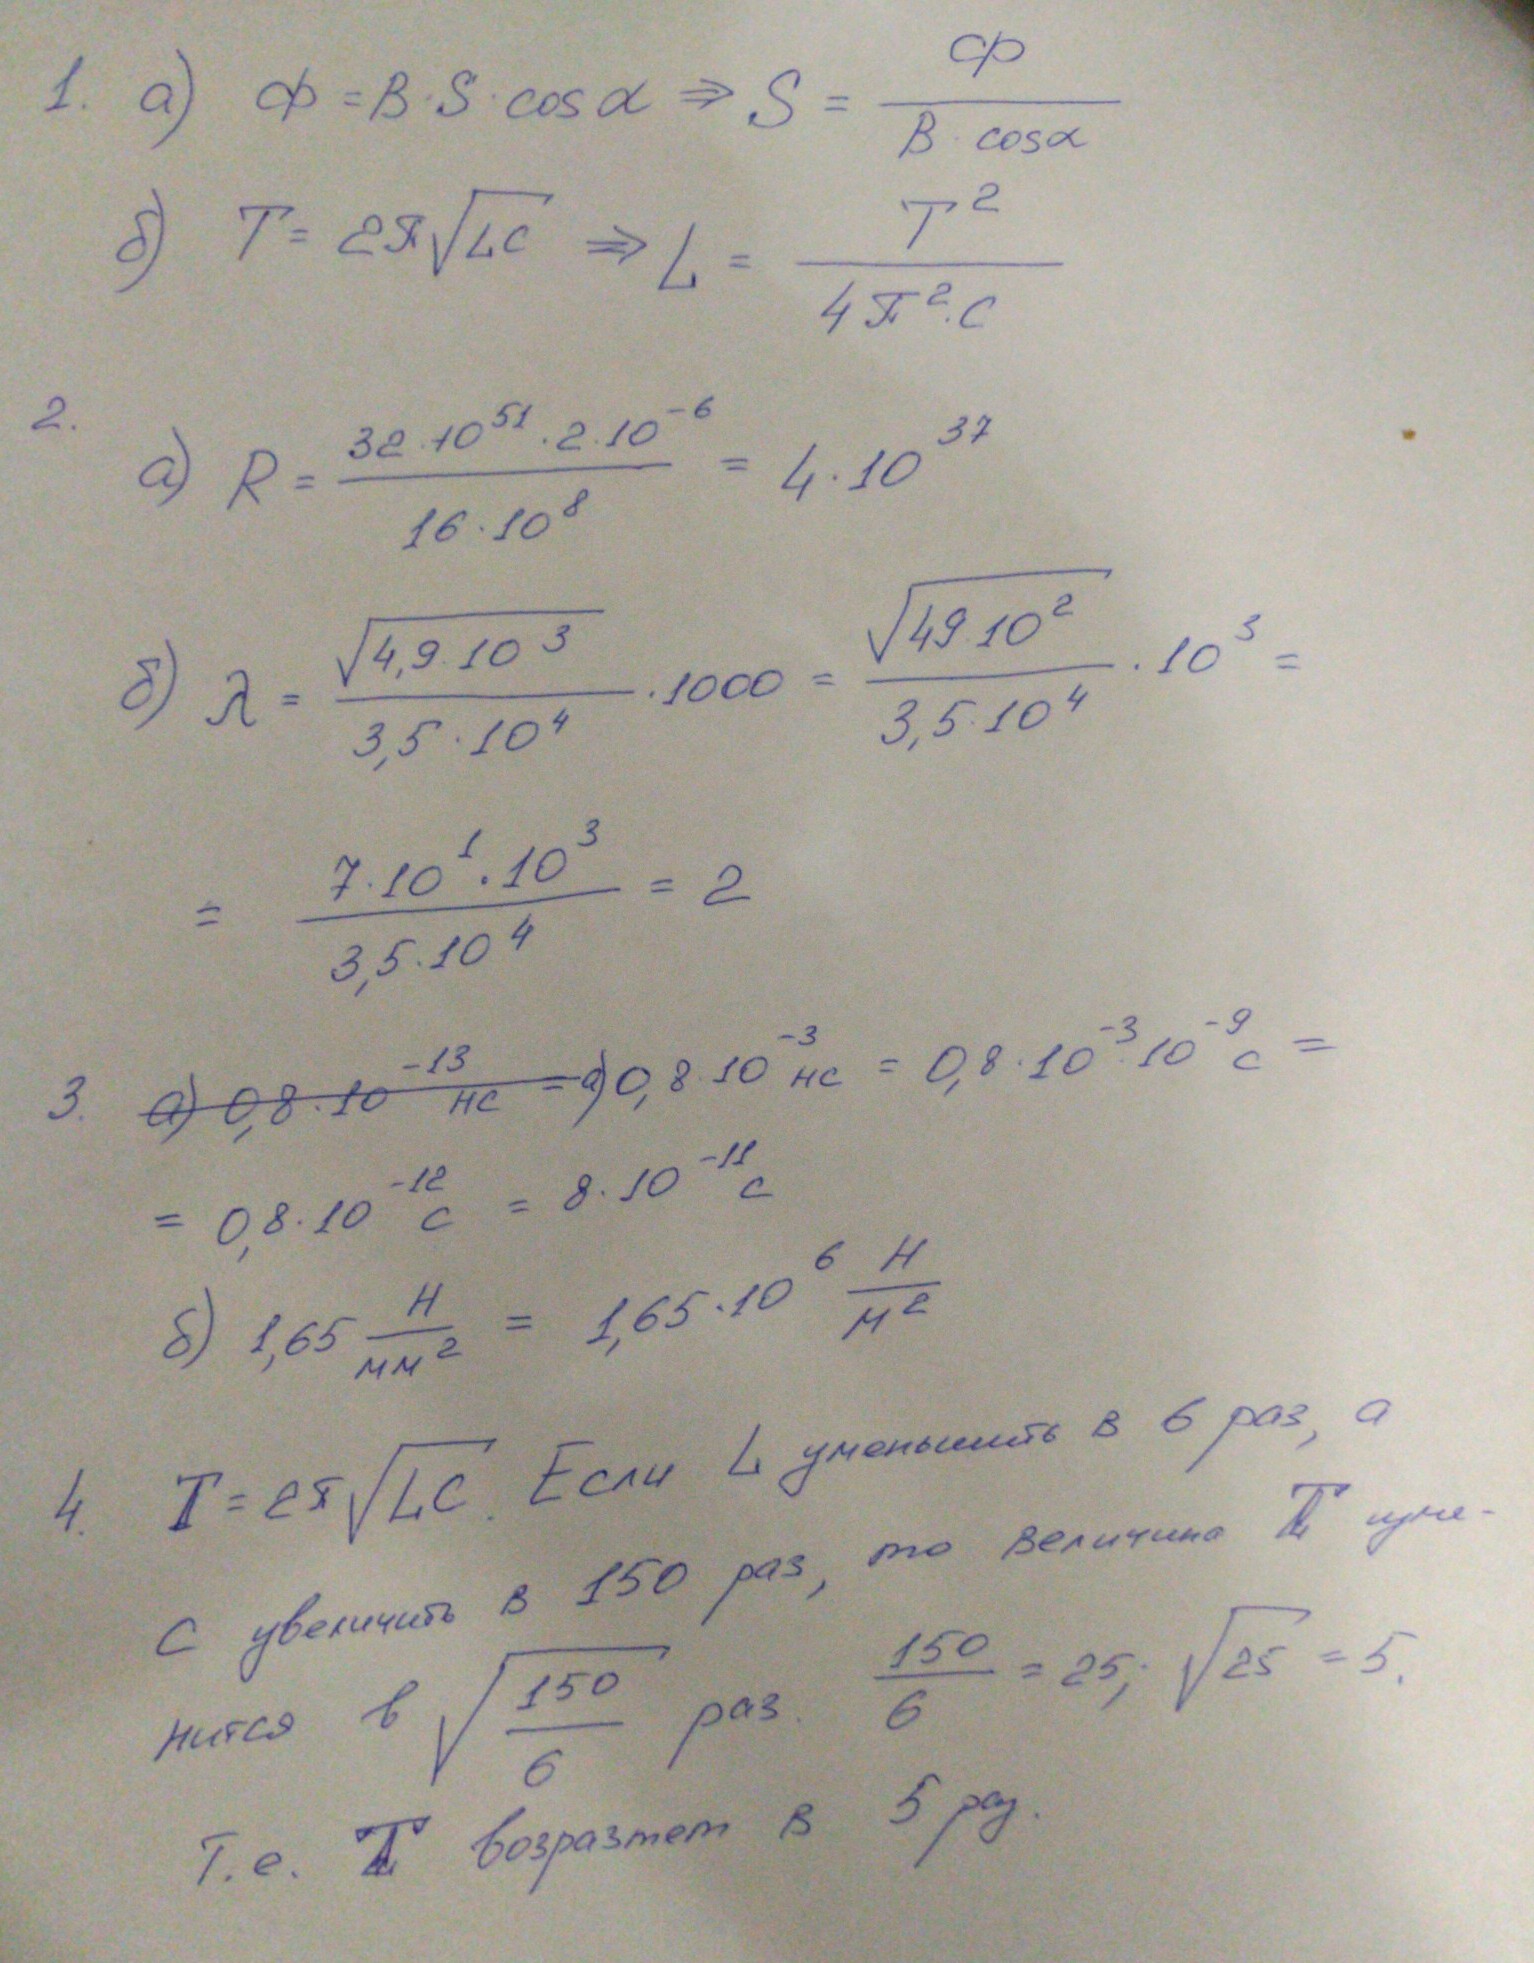 1. а) Ф = B · S · cos α ⇒ S = Ф / (B · cos α)
б) T = 2π√(LC) ⇒ L = T² / (4π² · C)
2. а) R = (32 · 10⁵¹ · 2 · 10⁻⁶) / (16 · 10⁸) = 4 · 10³⁷
б) λ = √(4,9 · 10³) / (3,5 · 10⁴) · 1000 = √(49 · 10²) / (3,5 · 10⁴) · 10³ =
= (7 · 10¹ · 10³) / (3,5 · 10⁴) = 2
3. а) 0,8 · 10⁻¹³ нс = а) 0,8 · 10⁻³ нс = 0,8 · 10⁻³ · 10⁻⁹ с =
= 0,8 · 10⁻¹² с = 8 · 10⁻¹¹ с
б) 1,65 Н/мм² = 1,65 · 10⁶ Н/м²
4. T = 2π√(LC). Если L уменьшить в 6 раз, а
С увеличить в 150 раз, то величина T изме-
нится в √(150/6) раз. 150/6 = 25; √25 = 5.
Т.е. T возразтет в 5 раз.